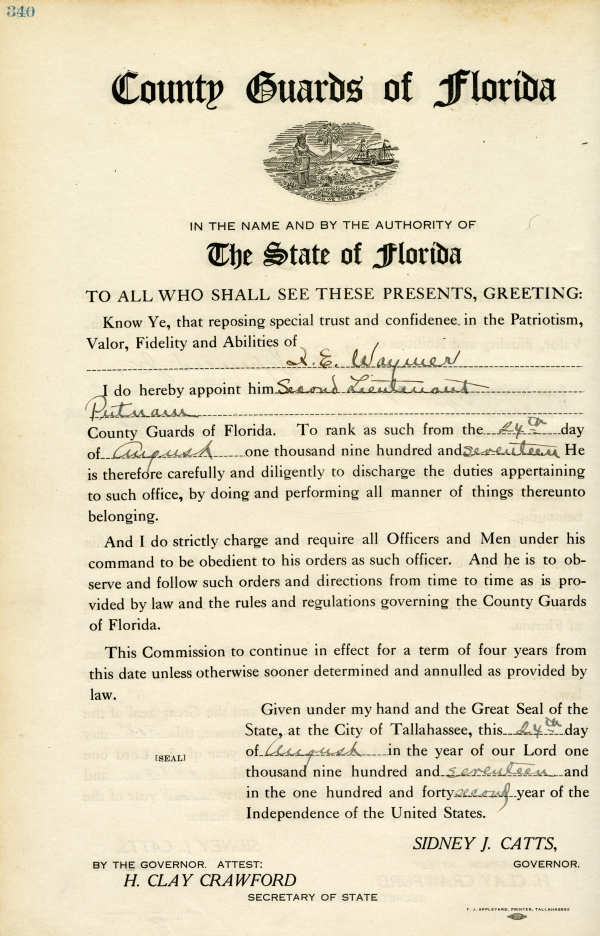 340
County Guards of Florida
IN GOD WE TRUST
IN THE NAME AND BY THE AUTHORITY OF
The State of Florida
TO ALL WHO SHALL SEE THESE PRESENTS, GREETING:
Know Ye, that reposing special trust and confidence in the Patriotism,
Valor, Fidelity and Abilities of
R. E. Waymer
I do hereby appoint him Second Lieutenant
Putnam
County Guards of Florida. To rank as such from the 24th day
of August one thousand nine hundred and seventeen He
is therefore carefully and diligently to discharge the duties appertaining
to such office, by doing and performing all manner of things thereunto
belonging.
And I do strictly charge and require all Officers and Men under his
command to be obedient to his orders as such officer. And he is to ob-
serve and follow such orders and directions from time to time as is pro-
vided by law and the rules and regulations governing the County Guards
of Florida.
This Commission to continue in effect for a term of four years from
this date unless otherwise sooner determined and annulled as provided by
law.
Given under my hand and the Great Seal of the
State, at the City of Tallahassee, this 24th day
of August in the year of our Lord one
[SEAL]
thousand nine hundred and seventeen and
in the one hundred and forty second year of the
Independence of the United States.
SIDNEY J. CATTS,
GOVERNOR.
BY THE GOVERNOR. ATTEST:
H. CLAY CRAWFORD
SECRETARY OF STATE
T. J. APPLEYARD, PRINTER, TALLAHASSEE